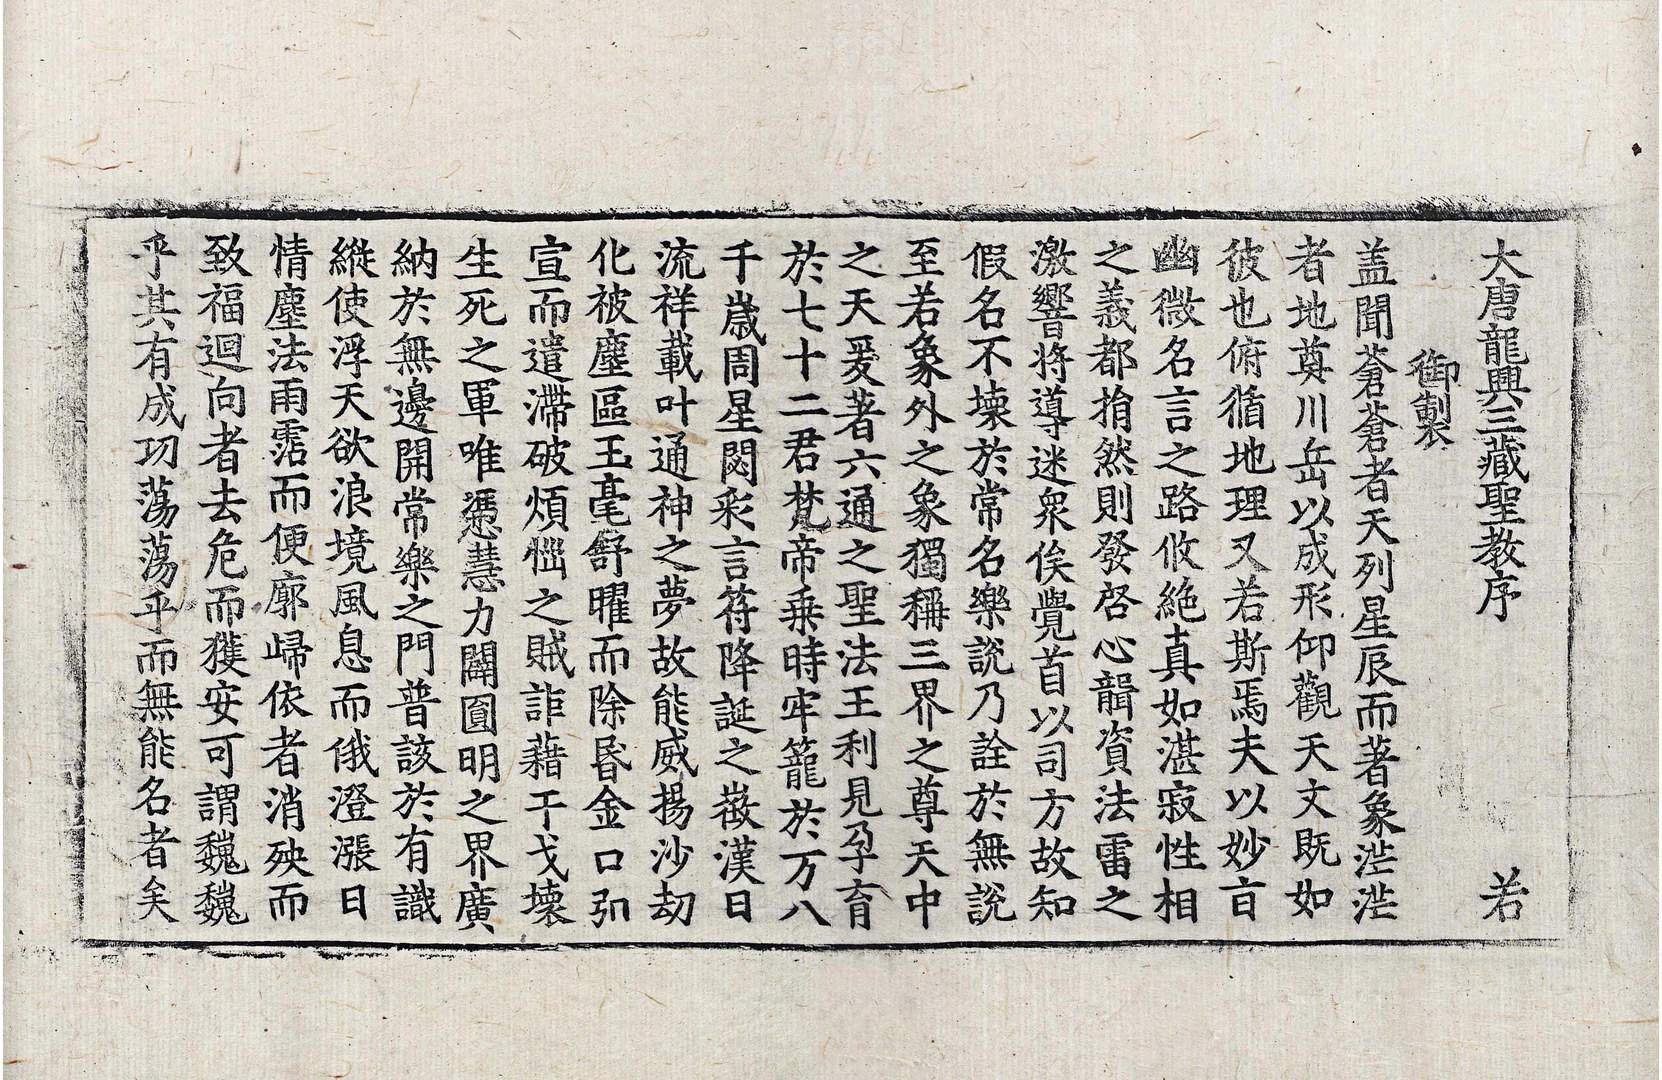 大唐龍興三藏聖教序 若
御製
盖聞蒼蒼者天列星辰而著象茫茫
者地奠川岳以成形仰觀天文既如
彼也俯循地理又若斯焉夫以妙旨
幽微名言之路攸絶真如湛寂性相
之義都捐然則發啓心韻資法雷之
激響將導迷衆俟覺首以司方故知
假名不壞於常名樂說乃詮於無說
至若象外之象獨稱三界之尊天中
之天爰著六通之聖法王利見孕育
於七十二君梵帝乗時牢籠於万八
千歲周星閟彩言符降誕之徵漢日
流祥載叶通神之夢故能威揚沙劫
化被塵區玉毫舒曜而除昏金口弘
宣而遣滯破煩惱之賊詎藉干戈壞
生死之軍唯憑慧力闢圓明之界廣
納於無邊開常樂之門普該於有識
縱使浮天欲浪境風息而俄澄漲日
情塵法雨霑而便廓歸依者消殃而
致福迴向者去危而獲安可謂魏魏
乎其有成功蕩蕩乎而無能名者矣